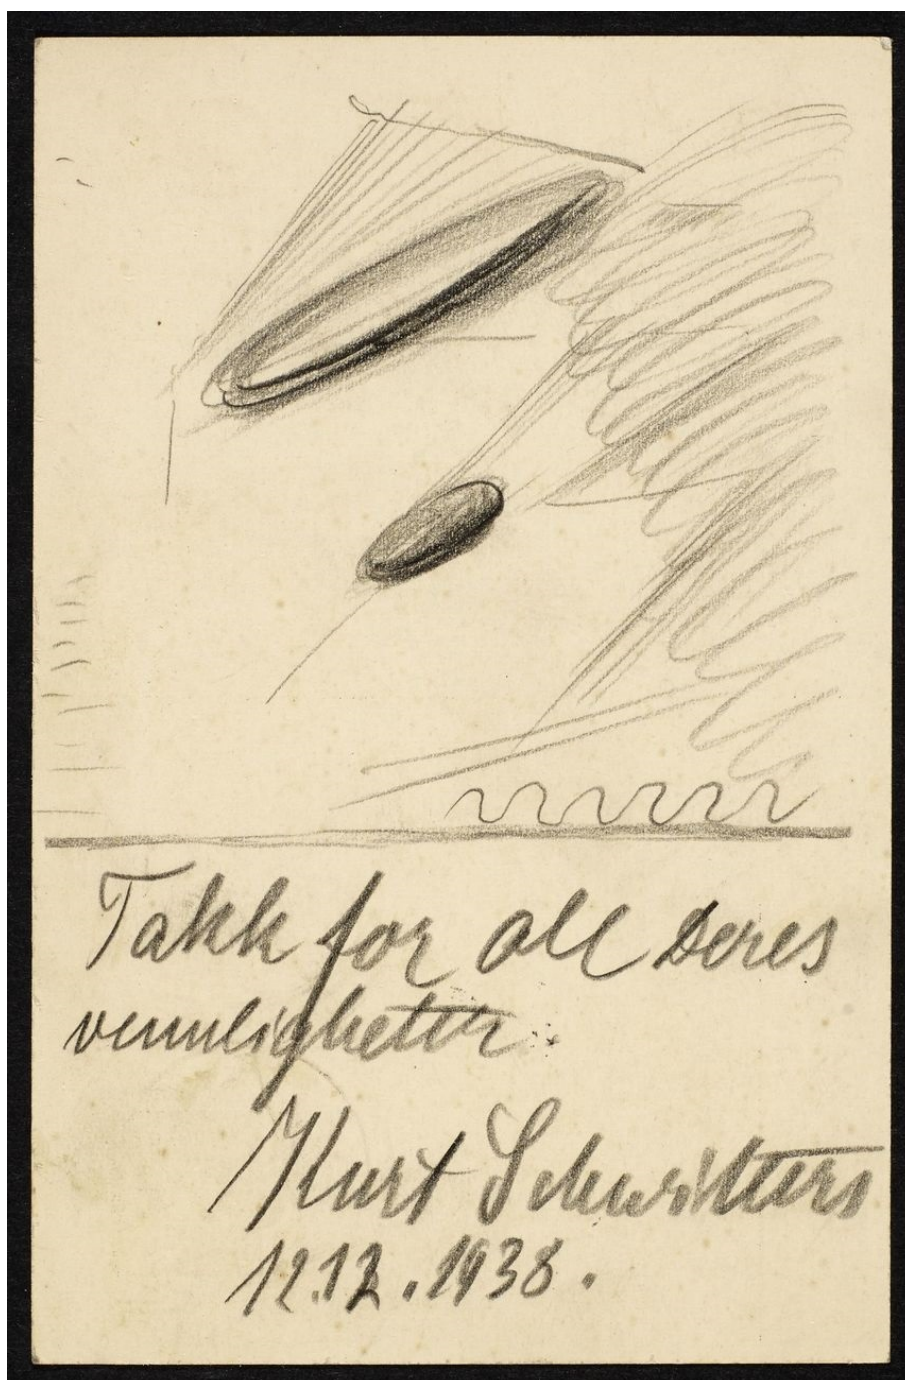 Takk for all Deres
vennligheter.
Kurt Schwitters
12.12.1938.